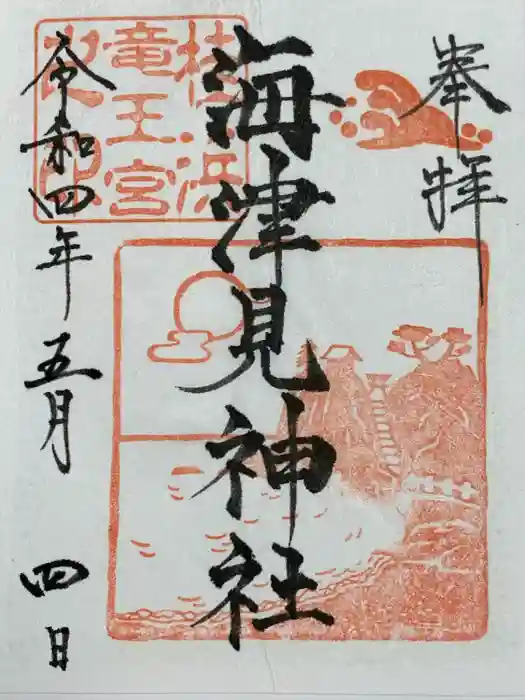 奉拝
海津見神社
桂浜
竜王宮
令和四年五月四日